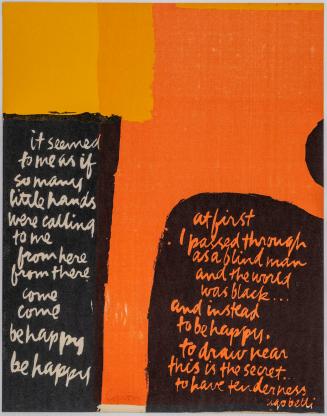 it seemed
to me as if
so many
little hands
were calling
to me
from here
from there
come
come
be happy
be happy
at first
I passed through
as a blind man
and the world
was black...
and instead
to be happy.
to draw near
this is the secret..
to have tenderness
ugo betti